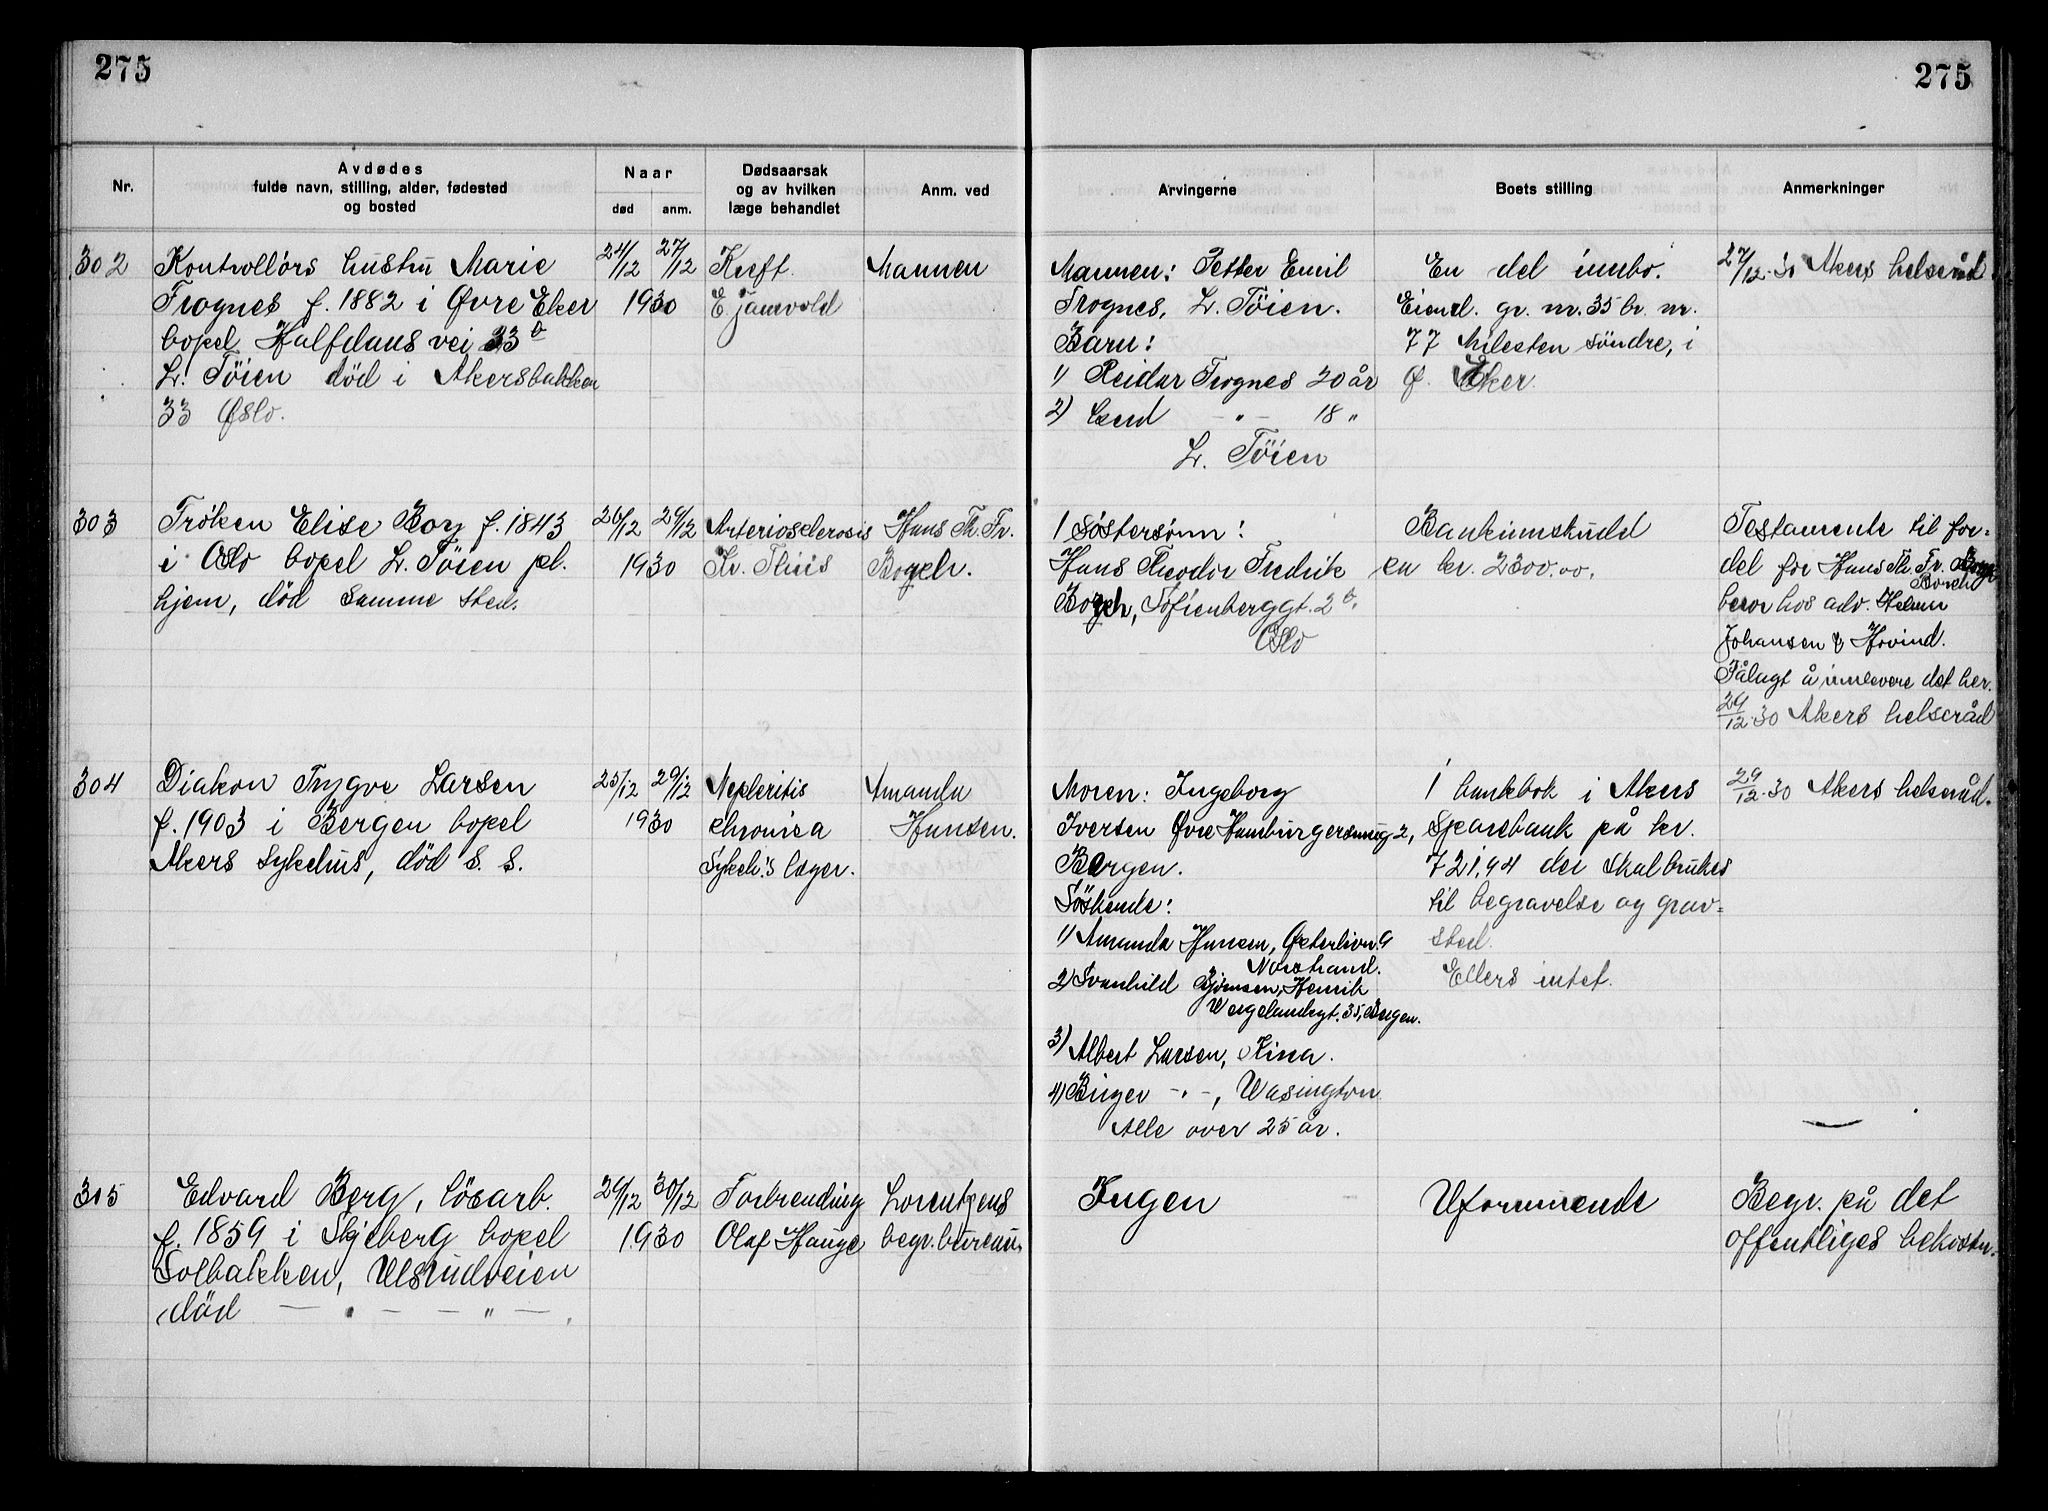 275
275
Nr.
Avdødes
fulde navn, stilling, alder, fødested
og bosted
Naar
død
anm.
Dødsaarsak
og av hvilken
læge behandlet
Anm. ved
Arvingerne
Boets stilling
Anmerkninger
302
Kontrollörs hustru Marie
Frognes f. 1882 i Øvre Eker
bopel Halfdans vei 33 b
L. Töien död i Akersbakken
33 Oslo.
24/12 27/12
1930
Kreft.
Mannen
Mannen: Petter Emil
Frognes, L. Töien.
Barn:
1) Reidar Frognes 20 år
2) -"- 18 "
L. Töien
En del innbo.
Eiend. gr. nr. 35 br. nr.
77 Milesten söndre, i
Ø. Eker.
27/12.30 Akers helseråd
303
Fröken Elise Borg f. 1843
i Oslo bopel L. Töien pl.
hjem, död samme sted.
26/12 29/12
1930
Arteriosclerosis
Kr. Thiis
Hans Th. Fr.
Borch.
1 Söstersönn:
Hans Theodor Fredrik
Borch, Sofienberggt. 2 b,
Oslo
Bankinnskudd
en kr. 2300.00.
Testamente til for-
del for Hans Th. Fr.
Borch
beror hos adv.
Johansen & Hovind.
Pålagt å innlevere det her.
29/12.30 Akers helseråd
304
Diakon Trygve Larsen
f. 1903 i Bergen bopel
Akers sykehus, död s. s.
25/12 29/12
1930
Nephritis
chronica
Sykeh.'s læger.
Amanda
Hansen.
Moren: Ingeborg
Iversen Øvre Hamburgersmug 2,
Bergen.
Söskende:
1) Amanda Hansen,
Nordstrand.
2) Svanhild Björnsen, Henrik
Wergelandsgt. 35, Bergen.
3) Albert Larsen, Kina.
4) Birger -"-, Wasington
Alle over 25 år.
1 bankbok i Akers
Sparebank på kr.
721,94 der skal brukes
til begravelse og grav-
sted.
Ellers intet.
29/12.30 Akers helseråd.
305
Edvard Berg, lösarb.
f. 1859 i Skjeberg bopel
Solbakken, Ulsrudveien
död — " — — " — .
29/12 30/12
1930
Forbrending
Olaf Hauge
Lorentzens
begr. bureau
Ingen
Uformuende
Begr. på det
offentliges bekostn.